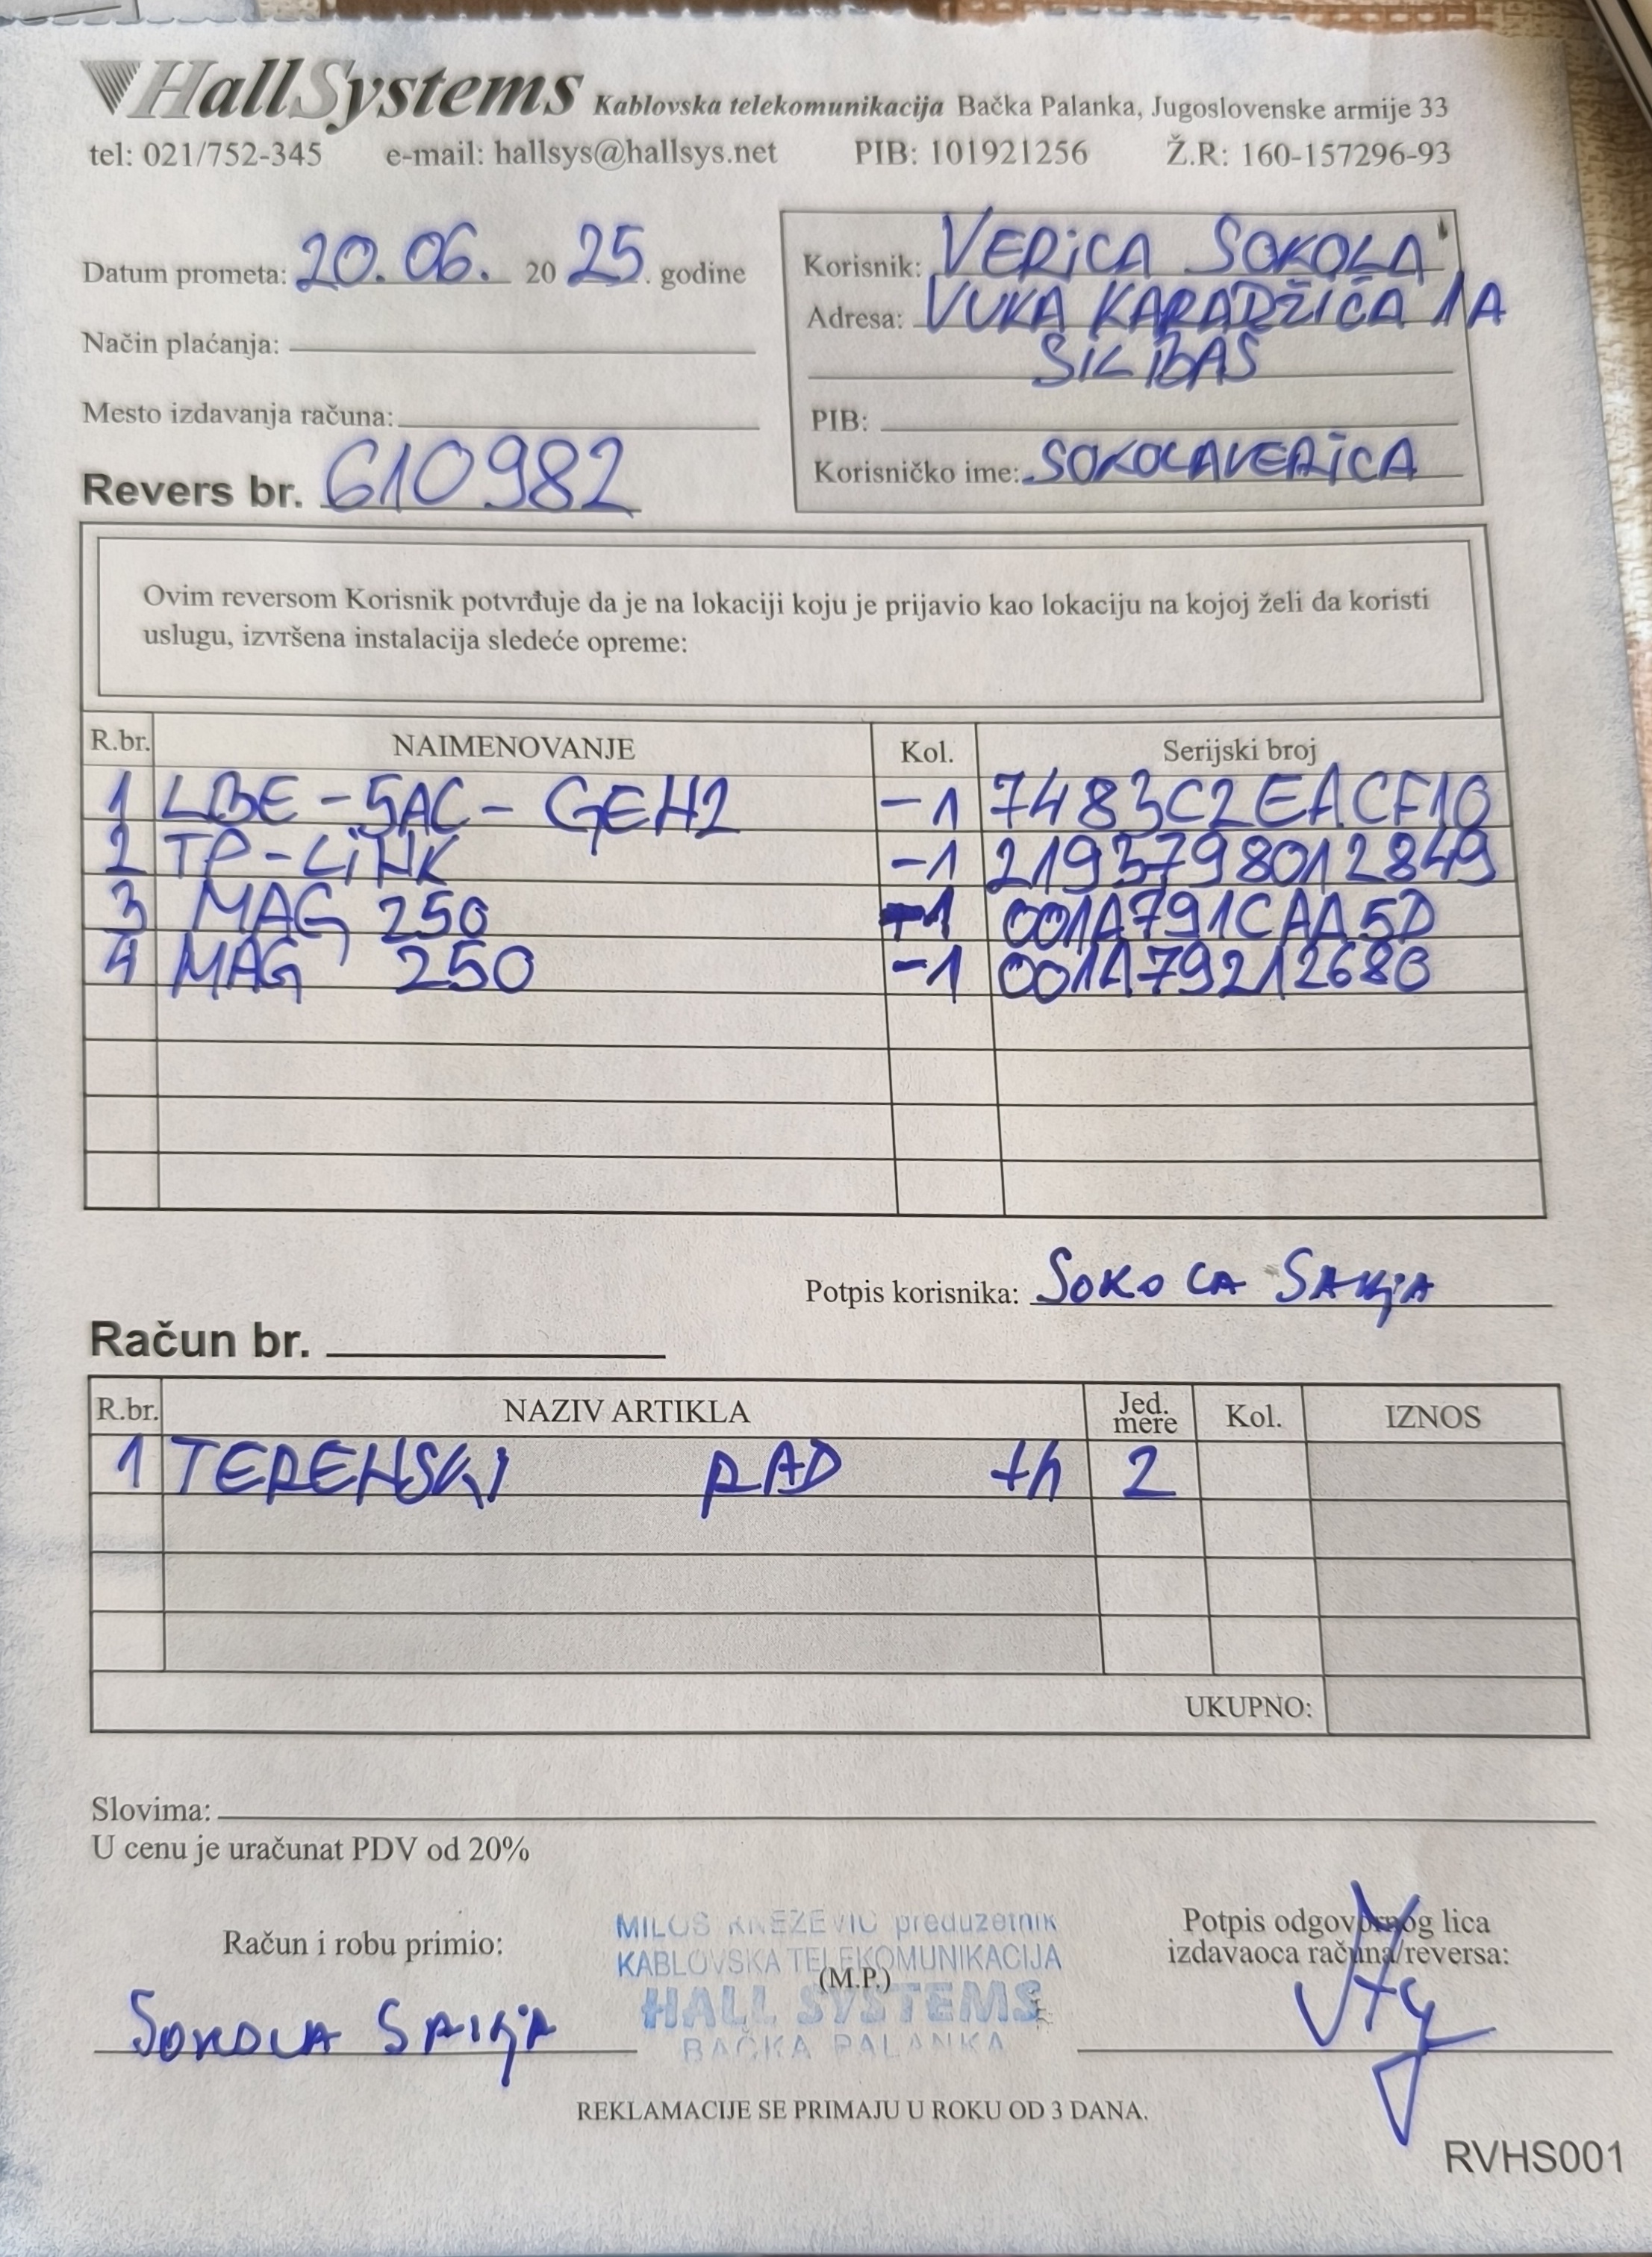 HallSystems Kablovska telekomunikacija Bačka Palanka, Jugoslovenske armije 33
tel: 021/752-345 e-mail: hallsys@hallsys.net PIB: 101921256 Ž.R: 160-157296-93
Datum prometa: 20.06. 20 25. godine
Način plaćanja:
Mesto izdavanja računa:
Revers br. 610982
Korisnik: VERICA SOKOLA
Adresa: VUKA KARADŽIĆA 1A
SILBAŠ
PIB:
Korisničko ime: SOKOLAVERICA
Ovim reversom Korisnik potvrđuje da je na lokaciji koju je prijavio kao lokaciju na kojoj želi da koristi
uslugu, izvršena instalacija sledeće opreme:
R.br. NAIMENOVANJE Kol. Serijski broj
1 LBE-5AC-GEN2 -1 7483C2EACF10
2 TP-LINK -1 2193798012849
3 MAG 250 1 001A791CAA5D
4 MAG 250 -1 001A79212680
Potpis korisnika: SOKOLA SANJA
Račun br.
R.br. NAZIV ARTIKLA Jed. mere Kol. IZNOS
1 TERENSKI RAD th 2
UKUPNO:
Slovima:
U cenu je uračunat PDV od 20%
Račun i robu primio:
SOKOLA SANJA
MILOŠ KNEŽEVIĆ preduzetnik
KABLOVSKA TELEKOMUNIKACIJA
(M.P.)
HALL SYSTEMS
BAČKA PALANKA
Potpis odgovornog lica
izdavaoca računa/reversa:
REKLAMACIJE SE PRIMAJU U ROKU OD 3 DANA.
RVHS001